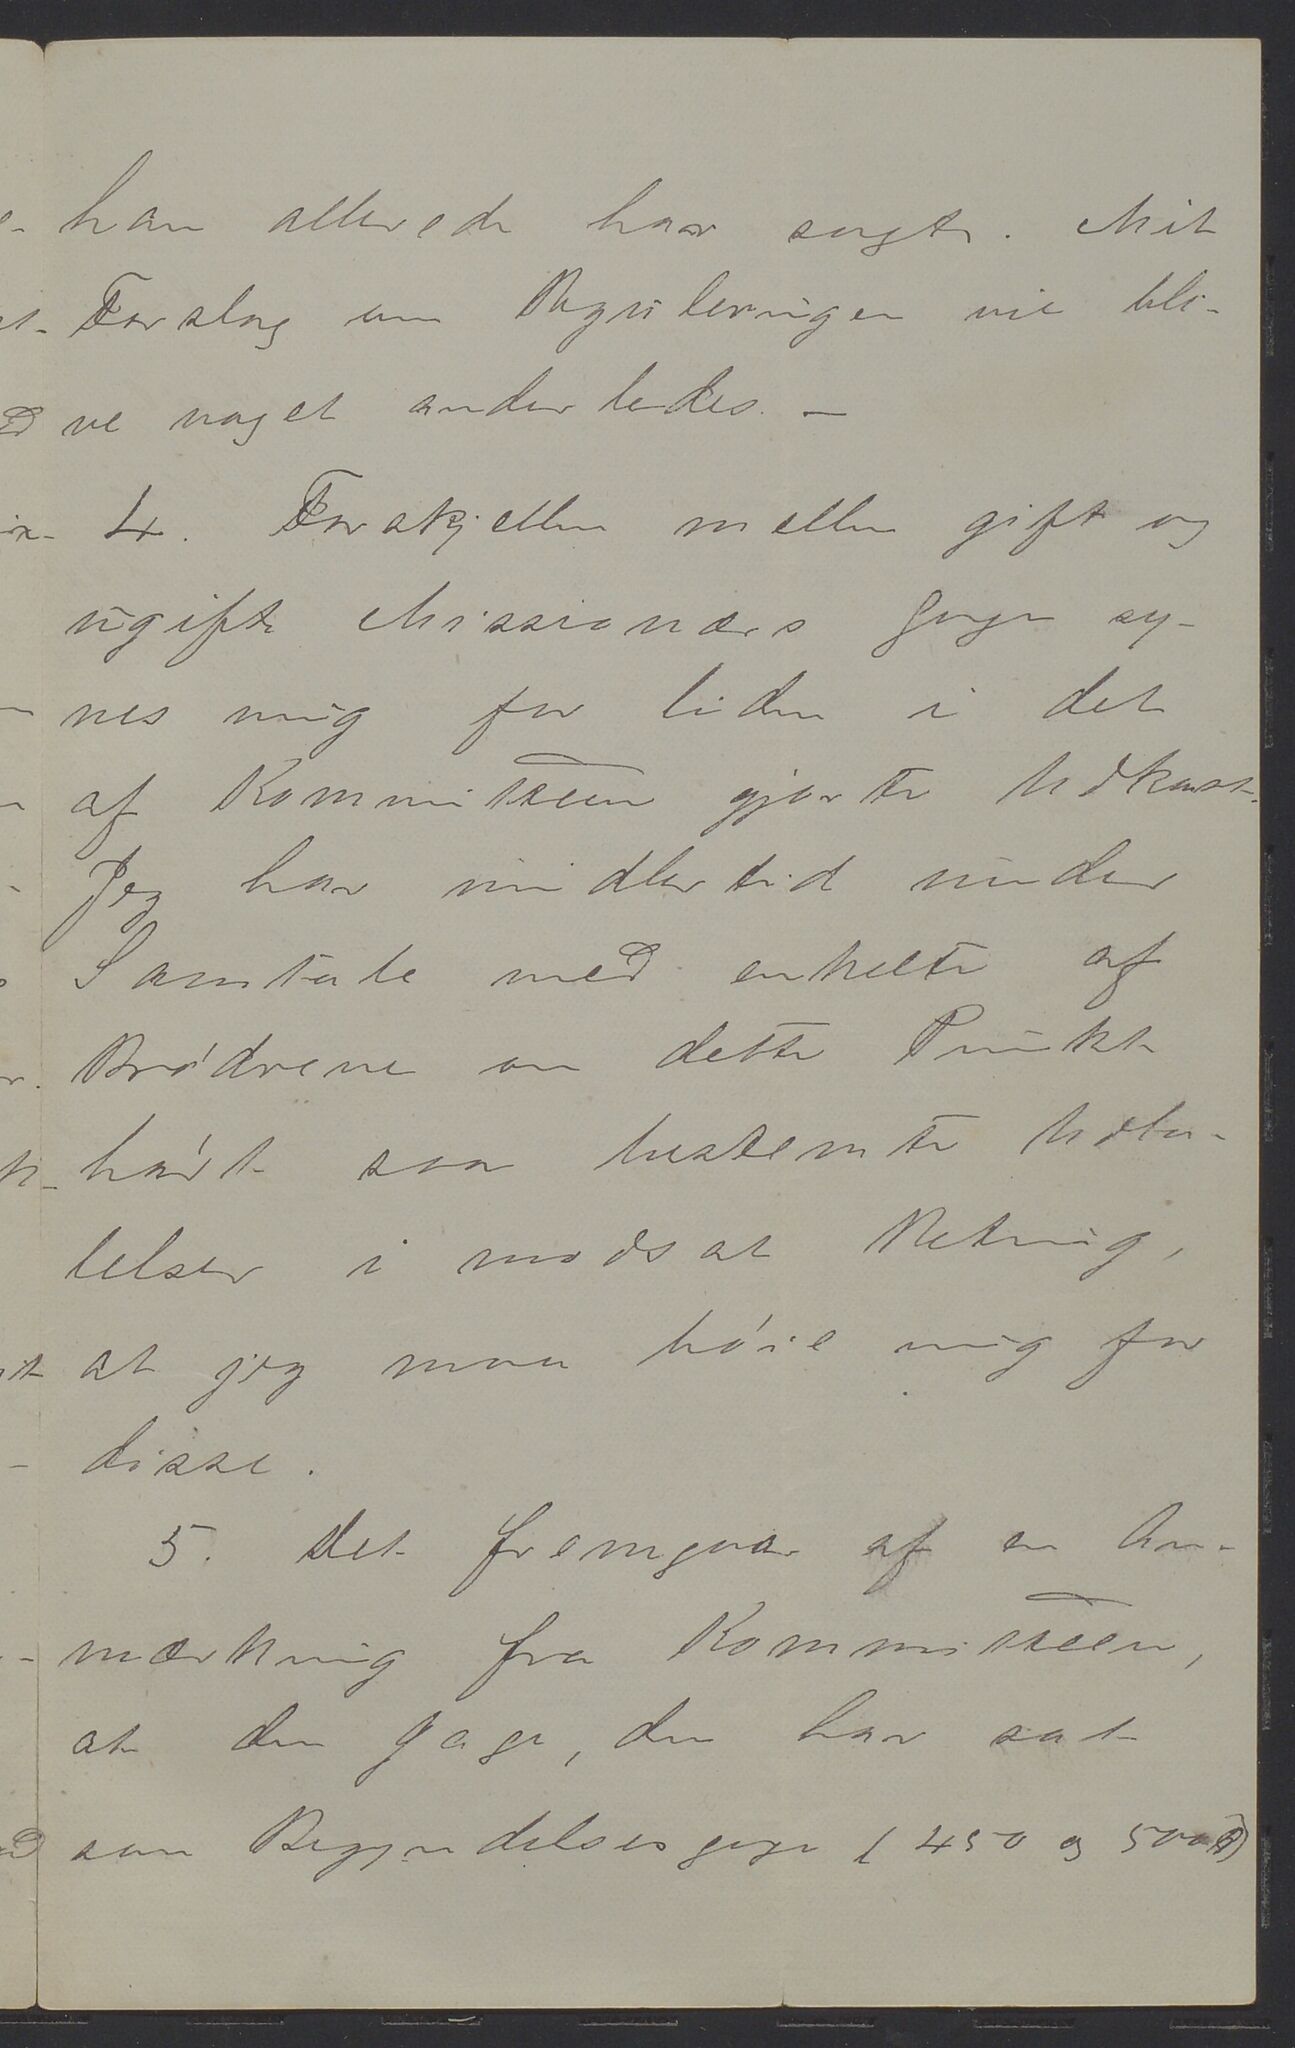 han allerede har sagt. Mit
Forslag om Reguleringen vil bli-
ve noget anderledes. —
4. Forskjellen mellem gift og
ugift Missionærs Gage sy-
nes mig for liden i det
af Kommitteen gjorte Udkast.
Jeg har imidlertid under
Samtale med enkelte af
Brødrene om dette Punkt
hørt saa bestemte Udta-
lelser i modsat Retning,
at jeg maa bøie mig for
disse.
5. Det fremgaar af en An-
mærkning fra Kommitteen,
at den Gage, den har sat
som Begyndelsesgage (450 og 500